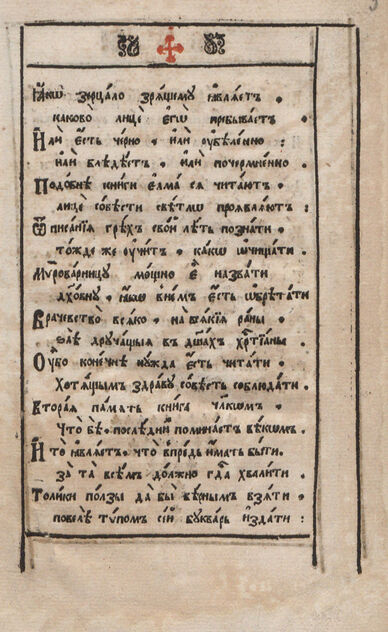 Ꙗ҆́кѡ зерца́ло зрѧ́щему ꙗ҆влѧ́етъ .
каково̀ лицѐ є҆гѡ̀ пребыва́етъ
И҆лѝ є҆́сть че́рно . и҆лѝ ᲂу҆бѣле́нно :
и҆лѝ блѣдѣ́етъ . и҆лѝ почермне́нно .
Подо́бнѣ кни́ги є҆лма̀ сѧ чита́ютъ .
лице со́вѣсти свѣ́тлѡ проѧвлѧ́ютъ :
Ѿ писа́нїѧ грѣ́хъ сво́й лѣ́ть позна́ти .
то́жде же ᲂу҆чи́тъ . ка́кѡ ѡ҆чища́ти .
Мѷрова́рницу мо́щно є҆̀ назва́ти
дх҃о́вну . ꙗ҆́кѡ в̾не́мъ є҆́сть ѡ҆брѣта́ти
Враче́вство всѧ́ко . на всѧ́кїѧ ра́ны .
ѕлѣ̀ друча́щыѧ в̾ дш҃а́хъ хрⷭ҇тїа́ны .
Оу҆̀бо коне́чнѣ ну́жда є҆́сть чита́ти .
хотѧ́щымъ здра́ву со́вѣсть соблюда́ти .
Втора́ѧ па́мѧть кни́га чл҃кѡмъ .
Что̀ бѣ̀ . послѣ́днїй помина́етъ вѣкѡ́мъ .
И҆ то̀ ꙗ҆влѧ́етъ . что̀ впре́дь и҆́мать бы́ти .
за та̀ всѣ́мъ до́лжно гдⷭ҇а хвали́ти .
Толи́ки по́лзы да̀ бы вѣ́рнымъ взѧ́ти .
повелѣ̀ ту́помъ се́й буква́рь и҆зда́ти :